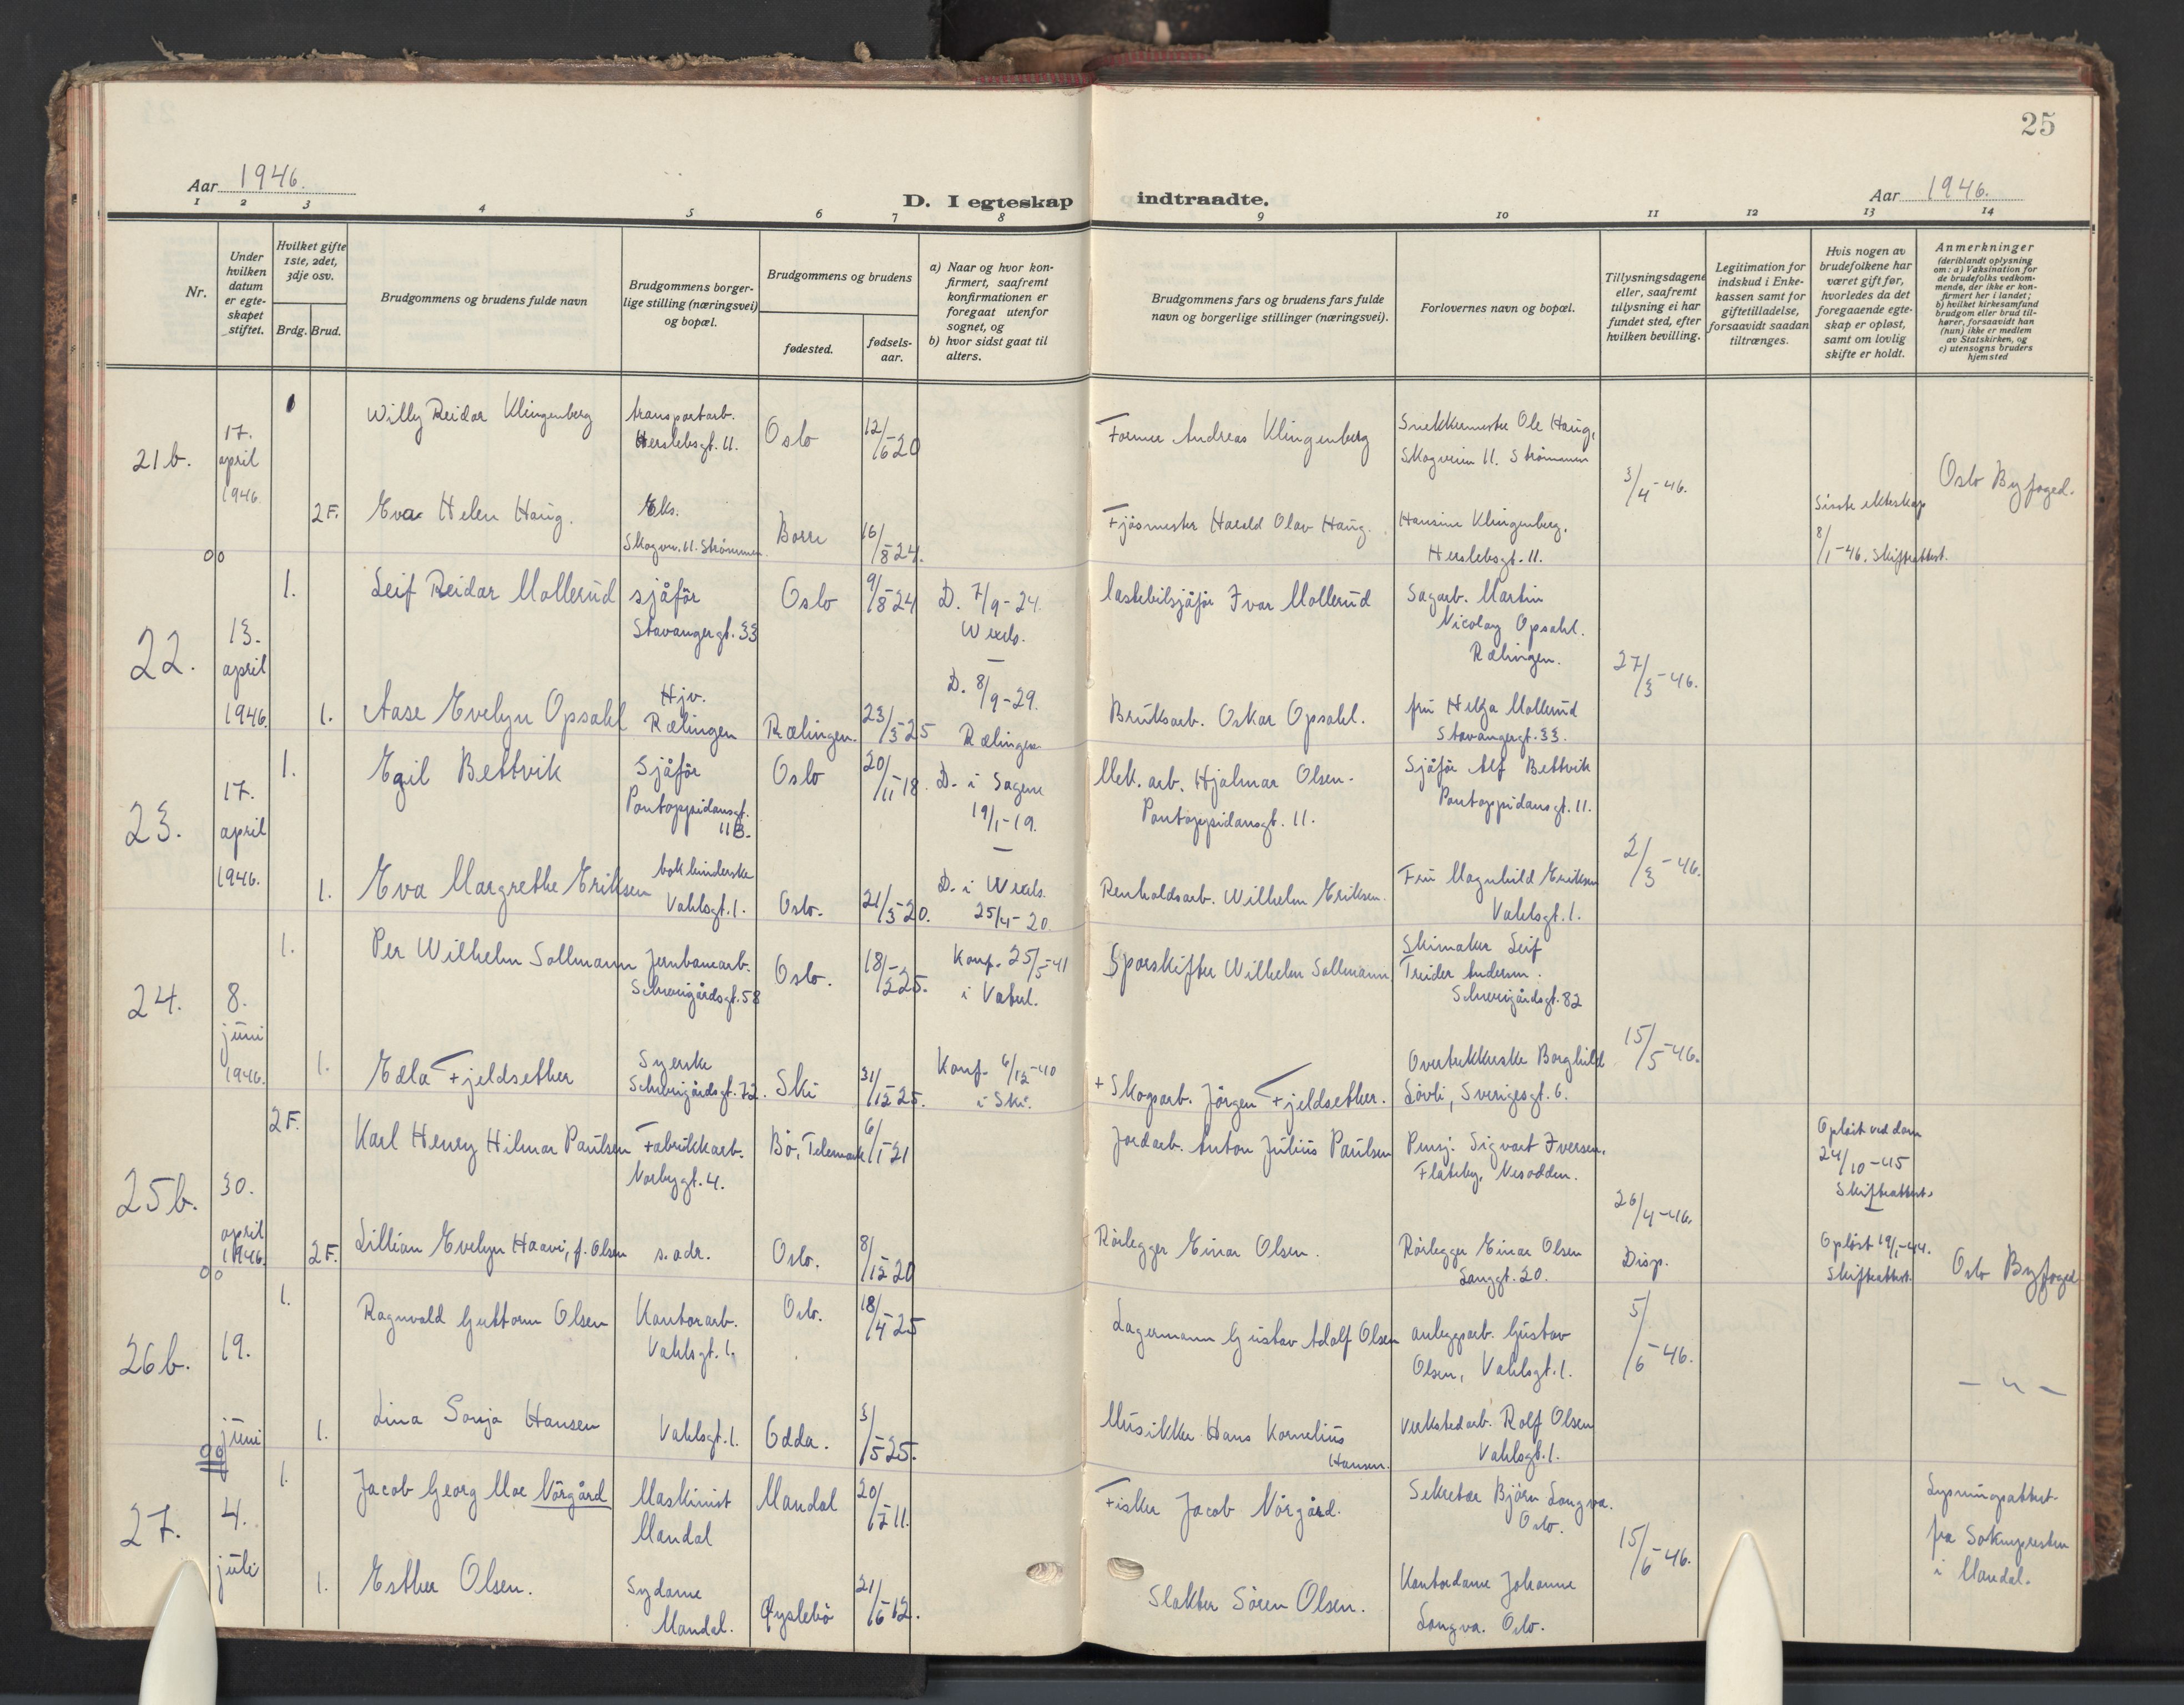 25
Aar 1946.
D. I egteskap indtraadte.
Aar 1946.
1 2 3 4 5 6 7 8 9 10 11 12 13 14
Nr.
Under hvilken datum er egteskapet stiftet.
Hvilket gifte 1ste, 2det, 3dje osv.
Brdg. Brud.
Brudgommens og brudens fulde navn
Brudgommens borgerlige stilling (næringsvei) og bopæl.
Brudgommens og brudens
fødested.
fødselsaar.
a) Naar og hvor konfirmert, saafremt konfirmationen er foregaat utenfor sognet, og
b) hvor sidst gaat til alters.
Brudgommens fars og brudens fars fulde navn og borgerlige stillinger (næringsvei).
Forlovernes navn og bopæl.
Tillysningsdagene eller, saafremt tillysning ei har fundet sted, efter hvilken bevilling.
Legitimation for indskud i Enkekassen samt for giftetilladelse, forsaavidt saadan tiltrænges.
Hvis nogen av brudefolkene har været gift før, hvorledes da det foregaaende egteskap er opløst, samt om lovlig skifte er holdt.
Anmerkninger (deriblandt oplysning om: a) Vaksination for de brudefolks vedkommende, der ikke er konfirmert her i landet; b) hvilket kirkesamfund brudgom eller brud tilhører, forsaavidt han (hun) ikke er medlem av Statskirken, og c) utensogns bruders hjemsted
21b. 17. april 1946.
Willy Reidar Klingenberg
transportarb. Herslebsgt. 11.
Oslo
12/6-20
Former Andreas Klingenberg
Snekkermester Ole Haug, Skogveien 11. Strømmen
3/4-46.
Oslo Byfoged.
2F.
Eva Helen Haug.
Eks. Skogvn. 11. Strømmen.
Borre
16/8-24.
Fjøsmester Harald Olav Haug.
Hansine Klingenberg. Herslebsgt. 11.
Siste ekteskap 8/1-46. Skifteattest.
22. 13. april 1946.
1.
Leif Reidar Mollerud
sjåför Stavangergt. 33
Oslo
9/8-24
D. 7/9-24. Wexels.
lastebilsjåför Ivar Mollerud
Sagarb. Martin Nicolay Opsahl. Rælingen.
27/3-46.
1.
Aase Evelyn Opsahl
Hjv. Rælingen
Rælingen.
23/3-25
D. 8/9-29. Rælingen
Bruksarb. Oskar Opsahl.
fru Helga Mollerud Stavangergt. 33.
23. 17. april 1946.
1.
Egil Bettvik
Sjåför Pontoppidansgt. 11B.
Oslo
20/11-18.
D. i Sagene 19/1-19.
Mek. arb. Hjalmar Olsen. Pontoppidansgt. 11.
Sjåför Alf Bettvik Pontoppidansgt. 11.
2/3-46.
1.
Eva Margrethe Eriksen
bokbinderske Vahlsgt. 1.
Oslo.
21/3-20.
D. i Wexels. 25/4-20.
Renholdsarb. Wilhelm Eriksen.
Fru Magnhild Eriksen Vahlsgt. 1.
24. 8. juni 1946.
1.
Per Wilhelm Sollmann
Jernbanearb. Schweigårdsgt. 58
Oslo.
Konf. 25/5-41 i Vaterl.
Sporskifter Wilhelm Sollmann
Skimaker Leif Treider Andersen. Schweigårdsgt. 82
15/5-46.
1.
Edla Fjeldsether
Syerske Schweigårdsgt. 72.
Ski
31/12-25.
Konf. 6/12-40 i Ski.
+ Skogsarb. Jörgen Fjeldsether.
Overtrekkerske Borghild Lövli, Sverigesgt. 6.
25b. 30. april 1946.
2F.
Karl Henry Hilmar Paulsen
Fabrikkarb. Norbygt. 4.
Bö, Telemark
6/1-21
Jordarb. Anton Julius Paulsen
Pensj. Sigvart Iversen, Flateby, Nesodden.
26/4-46. Disp.
Oplöst ved dom 24/10-45 Skifteattest.
2F.
Lillian Evelyn Haavi, f. Olsen
s. adr.
Oslo.
8/12-20
Rörlegger Einar Olsen.
Rörlegger Einar Olsen Langgt. 20.
Oplöst 19/1-44. Skifteattest.
Oslo Byfoged
26b. 19. juni
1.
Ragnvald Guttorm Olsen
Kontorarb. Vahlsgt. 1.
Oslo.
18/4-25
Lagermann Gustav Adolf Olsen
anleggsarb. Gustav Olsen, Vahlsgt. 1.
5/6-46.
— " —
1.
Lina Sonja Hansen
Vahlsgt. 1.
Odda.
3/5-25.
Musikker Hans Kornelius Hansen.
Verkstedarb. Rolf Olsen Vahlsgt. 1.
27. 4. juli
1.
Jacob Georg Moe Nörgård
Maskinist Mandal
Mandal
Fisker Jacob Nörgård.
Sekretær Björn Langva. Oslo.
15/6-46.
Lysningsattest fra Soknepresten i Mandal.
1.
Esther Olsen.
Sydame Mandal.
Øyslebö
21/6-12.
Slakter Sören Olsen.
Kontordame Johanne Langva. Oslo.